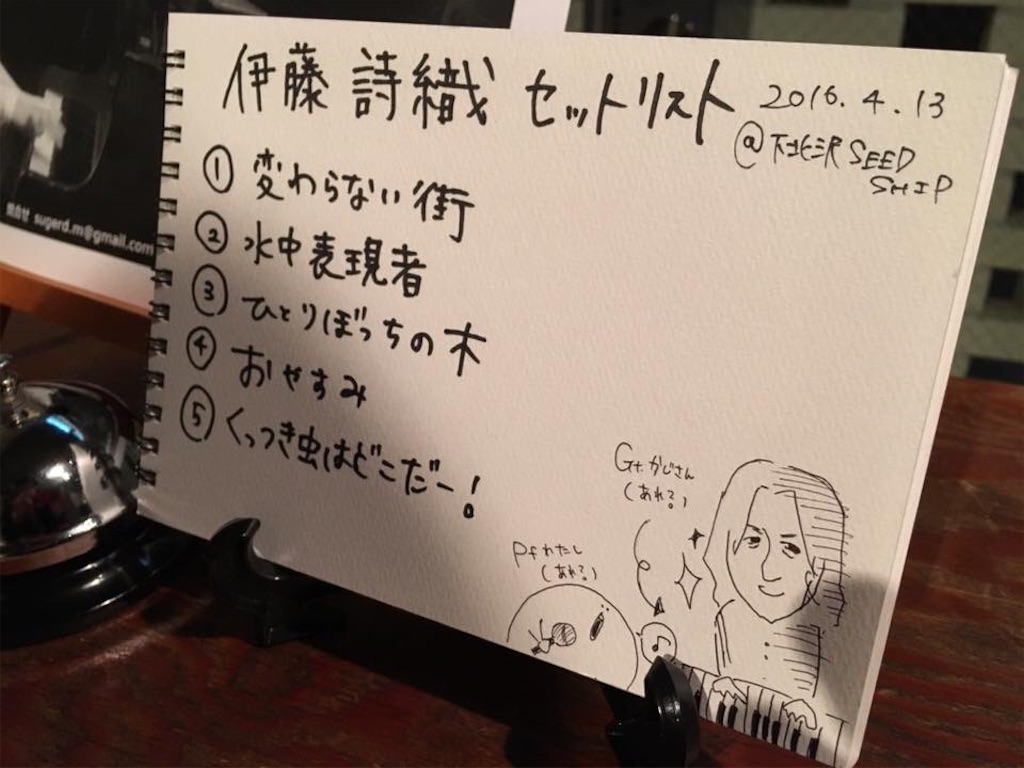 伊藤 詩織 セットリスト
2016.4.13
@下北沢 SEED
SHIP
① 変わらない街
② 水中表現者
③ ひとりぼっちの木
④ おやすみ
⑤ くっつき虫はどこだー!
Gt かじさん
(あれ?)
Pf わたし
(あれ?)
問合せ sugerd.m@gmail.com